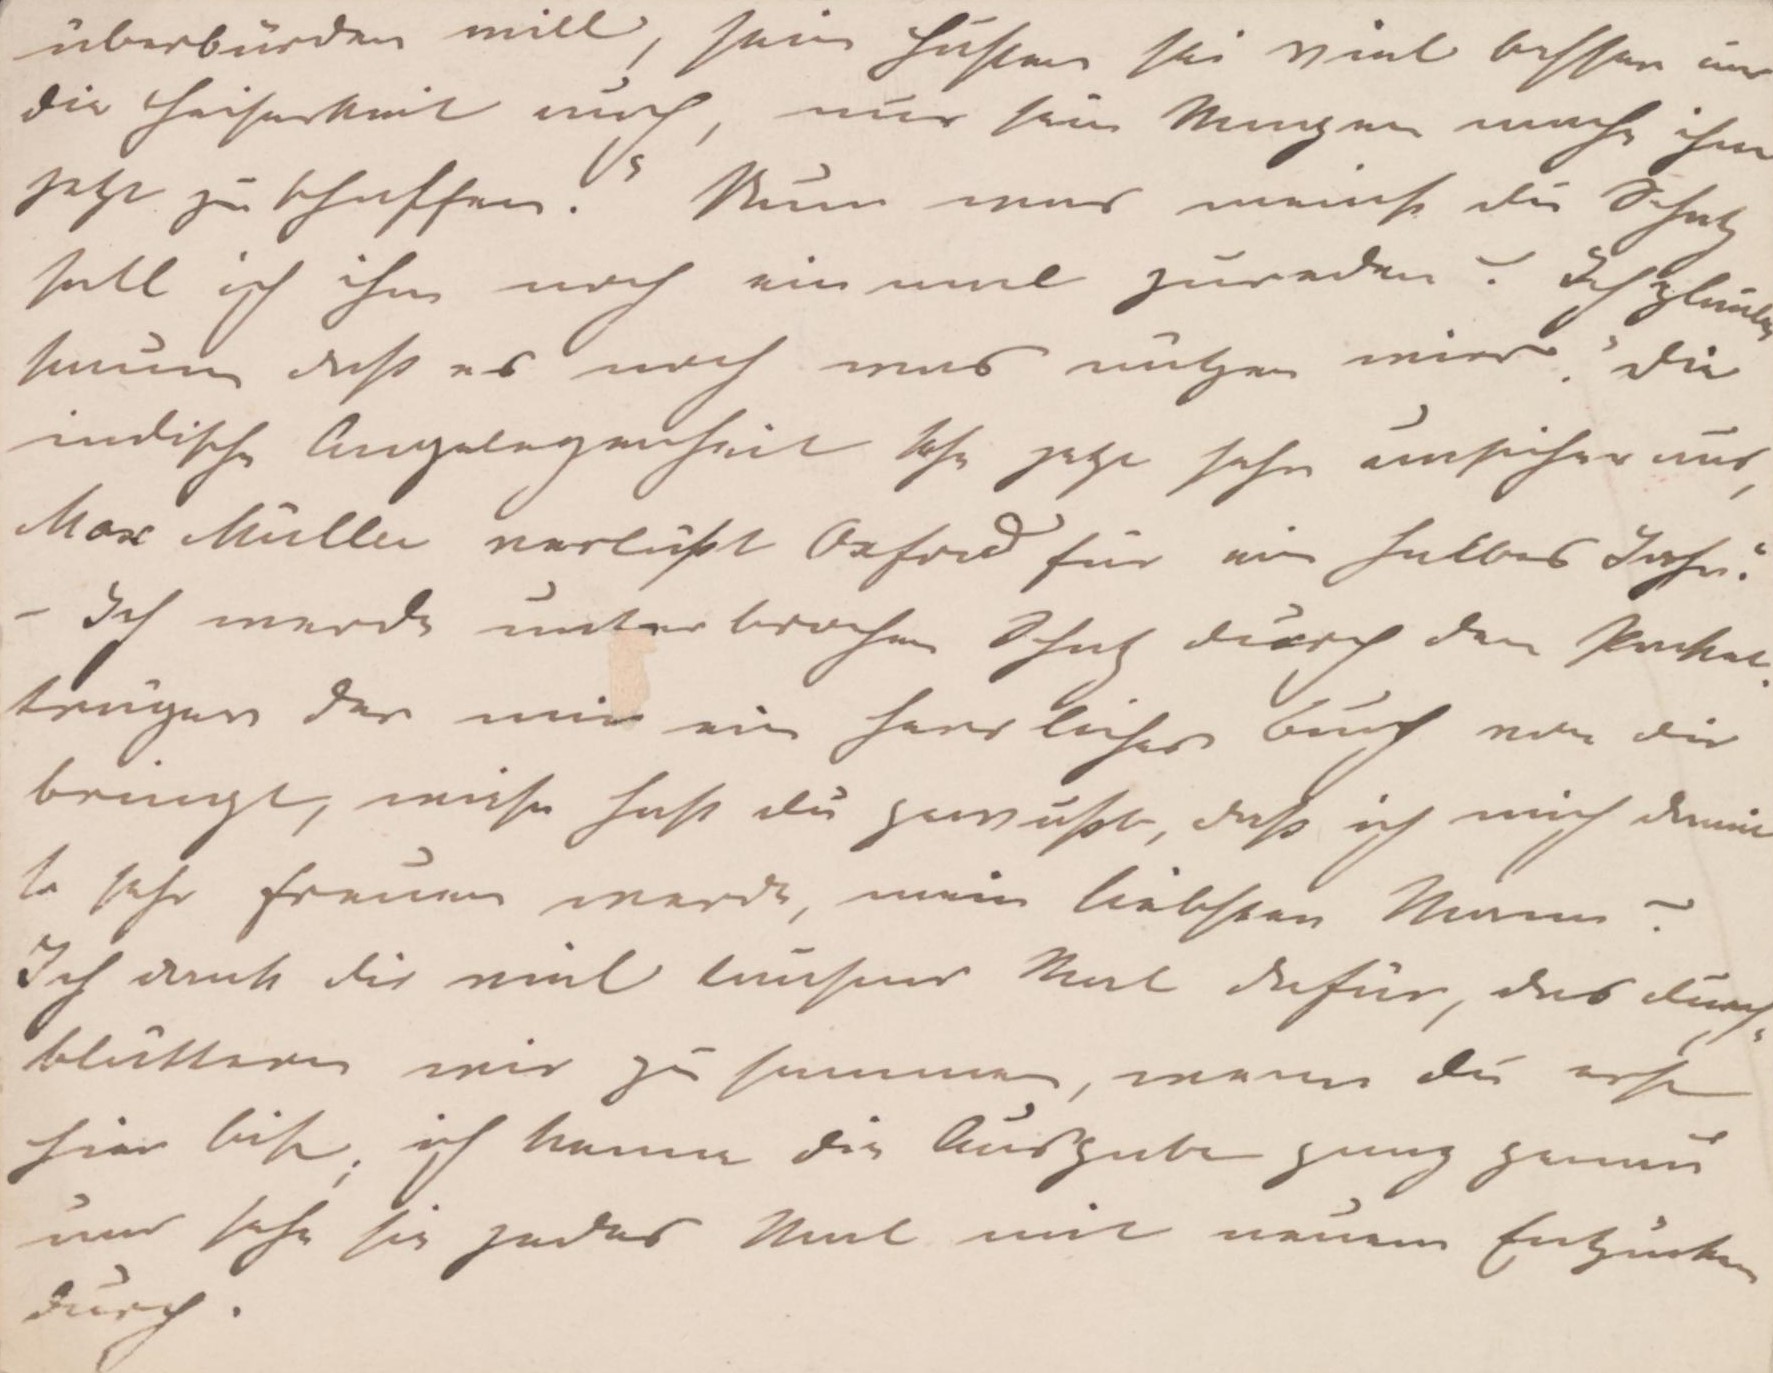 überbürden will, sein Husten sei viel besser und
die Heiserkeit auch, nur sein Magen mache ihm
jetzt zu schaffen." Nun was meinst du Schatz
soll ich ihm noch ein mal zureden? Ich glaube
kaum daß es noch was nützen wird." Die
indische Angelegenheit sehe jetzt sehr unsicher aus,
Max Müller verläßt Oxford für ein halbes Jahr."
– Ich werde unterbrochen Schatz durch den Packet-
träger der mir ein herrliches Buch von dir
bringt, woher hast du gewußt, daß ich mich damit
so sehr freuen werde, mein liebster Mann?
Ich danke dir viel tausend Mal dafür, das durch-
blättern wir zusammen, wenn du erst
hier bist, ich kenne die Ausgabe ganz genau
und sehe sie jedes Mal mit neuem Entzücken
durch.